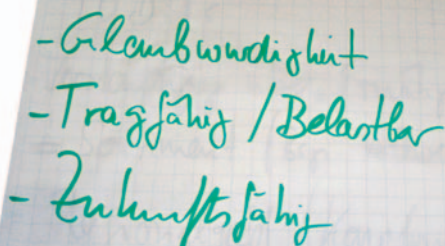 - Glaubwürdigkeit
- Tragfähig / Belastbar
- Zukunftsfähig